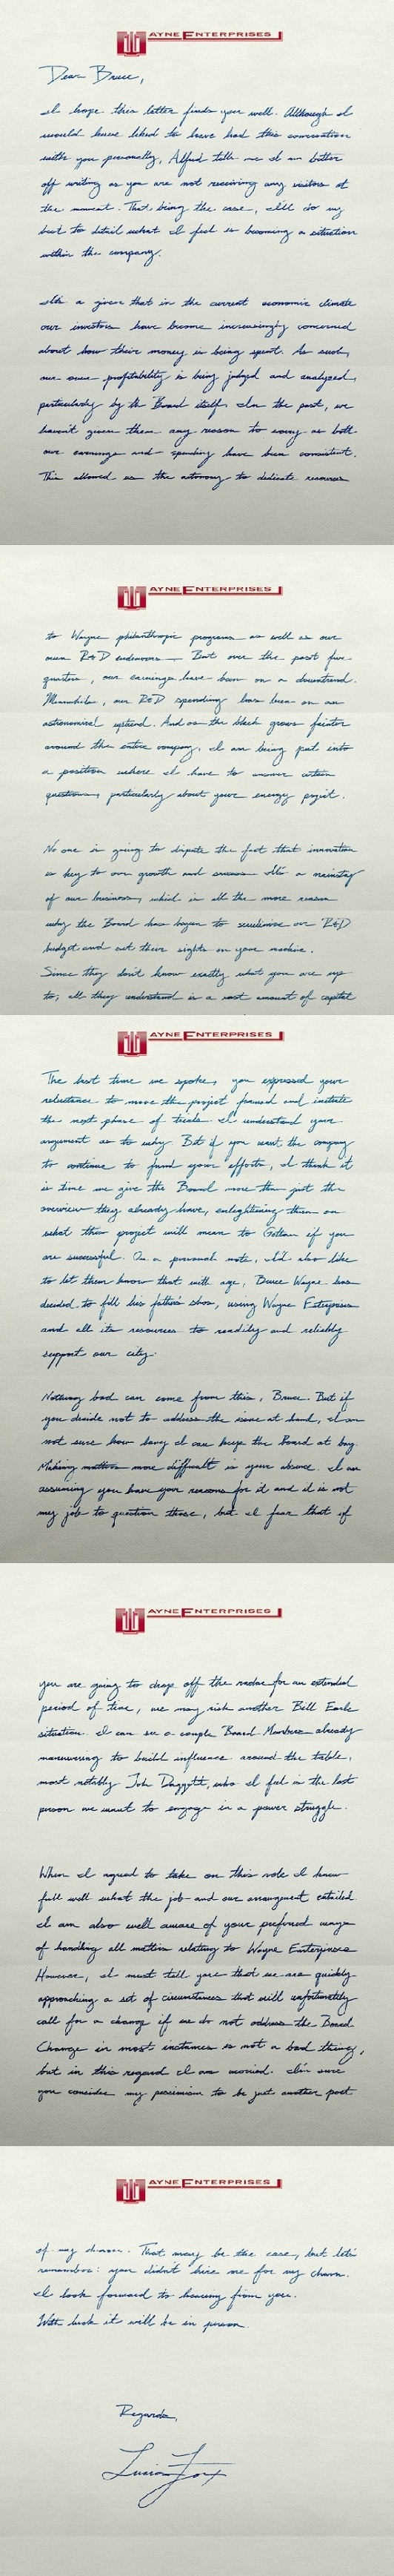 WAYNE ENTERPRISES
Dear Bruce,
I hope this letter finds you well. Although I
would have liked to have had this conversation
with you personally, Alfred tells me I am better
off writing as you are not receiving any visitors at
the moment. That being the case, I'll do my
best to detail what I feel is becoming a situation
within the company.
It's a given that in the current economic climate
our investors have become increasingly concerned
about how their money is being spent. As such,
our own profitability is being judged and analyzed,
particularly by the Board itself. In the past, we
haven't given them any reason to worry as both
our earnings and spending have been consistent.
This allowed us the autonomy to dedicate resources
WAYNE ENTERPRISES
to Wayne philanthropic programs as well as our
own R&D endeavors. But over the past five
quarters, our earnings have been on a downtrend.
Meanwhile, our R&D spending has been on an
astronomical uptrend. And as the black grows fainter
around the entire company, I am being put into
a position where I have to answer certain
questions, particularly about your energy project.
No one is going to dispute the fact that innovation
is key to our growth and success. It's a mainstay
of our business, which is all the more reason
why the Board has begun to scrutinize our R&D
budget and set their sights on your machine.
Since they don't know exactly what you are up
to, all they understand is a vast amount of capital
WAYNE ENTERPRISES
The last time we spoke, you expressed your
reluctance to move the project forward and initiate
the next phase of trials. I understand your
argument as to why. But if you want the company
to continue to fund your efforts, I think it
is time we give the Board more than just the
overview they already have, enlightening them on
what this project will mean to Gotham if you
are successful. On a personal note, I'd also like
to let them know that with age, Bruce Wayne has
decided to fill his father's shoes, using Wayne Enterprises
and all its resources to readily and reliably
support our city.
Nothing bad can come from this, Bruce. But if
you decide not to address the issue at hand, I am
not sure how long I can keep the Board at bay.
Making matters more difficult is your absence. I am
assuming you have your reasons for it and it is not
my job to question those, but I fear that if
WAYNE ENTERPRISES
you are going to drop off the radar for an extended
period of time, we may risk another Bill Earle
situation. I can see a couple Board Members already
maneuvering to build influence around the table,
most notably John Daggett, who I feel is the last
person we want to engage in a power struggle.
When I agreed to take on this role I knew
full well what the job and our arrangement entailed.
I am also well aware of your preferred ways
of handling all matters relating to Wayne Enterprises
However, I must tell you that we are quickly
approaching a set of circumstances that will unfortunately
call for a change if we do not address the Board.
Change in most instances is not a bad thing,
but in this regard I am worried. I'm sure
you consider my pessimism to be just another part
WAYNE ENTERPRISES
of my charm. That may be the case, but let's
remember: you didn't hire me for my charm.
I look forward to hearing from you.
With luck it will be in person.
Regards,
Lucius Fox